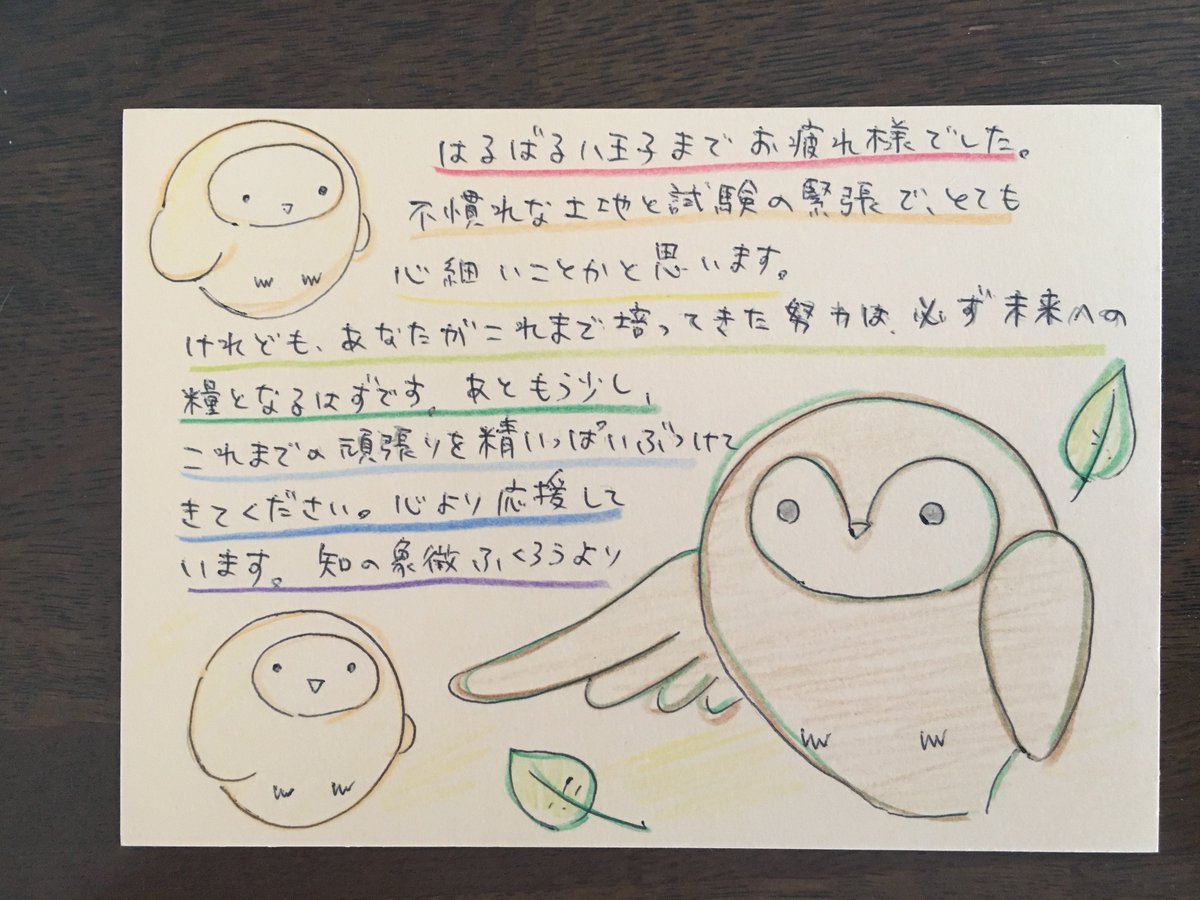 はるばる八王子までお疲れ様でした。
不慣れな土地と試験の緊張で、とても
心細いことかと思います。
けれども、あなたがこれまで培ってきた努力は、必ず未来への
糧となるはずです。あともう少し、
これまでの頑張りを精いっぱいぶつけて
きてください。心より応援して
います。知の象徴ふくろうより